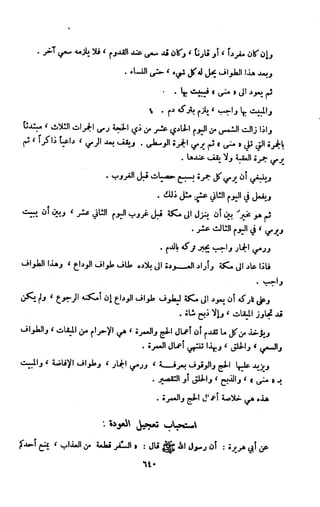 وإن كان مفرداً ، أو قارناً ، وكان قد سعى عند القدوم ، فلا يلزمه سعي آخر .
وبعد هذا الطواف يحل له كل شيء ، حتى النساء .
ثم يعود إلى « منى » فيبيت بها .
والمبيت بها واجب ، يلزم بتركه دم .
وإذا زالت الشمس من اليوم الحادي عشر من ذي الحجة رمى الجمرات الثلاث ، مبتدئاً
بالجمرة التي تلي « منى » ثم يرمي الجمرة الوسطى . ويقف بعد الرمي ، داعياً ذاكراً ، ثم
يرمي جمرة العقبة ولا يقف عندها .
وينبغي أن يرمي كل جمرة بسبع حصيات قبل الغروب .
ويفعل في اليوم الثاني عشر مثل ذلك .
ثم هو مخير بين أن ينزل الى مكة قبل غروب اليوم الثاني عشر ، وبين أن يبيت
ويرمي ، في اليوم الثالث عشر .
ورمي الجمار واجب يجبر تركه بالدم .
فاذا عاد الى مكة وأراد العودة الى بلاده طاف طواف الوداع ، وهذا الطواف
واجب .
وعلى تاركه أن يعود الى مكة ليطوف طواف الوداع إن أمكنه الرجوع ، ولم يكن
قد تجاوز الميقات ، وإلا ذبح شاة .
ويؤخذ من كل ما تقدم أن أعمال الحج والعمرة ، هي الإحرام من الميقات ، والطواف
والسعي ، والحلق ، وبهذا تنتهي أعمال العمرة .
ويزيد عليها الحج والوقوف بعرفة ، ورمي الجمار ، وطواف الإفاضة ، والمبيت
بـ « منى » ، والذبح ، والحلق أو التقصير .
هذه هي خلاصة أعمال الحج والعمرة .
استحباب تعجيل العودة :
عن أبي هريرة : أن رسول الله ﷺ قال : « السفر قطعة من العذاب ، يمنع أحدكم
٦٤٠